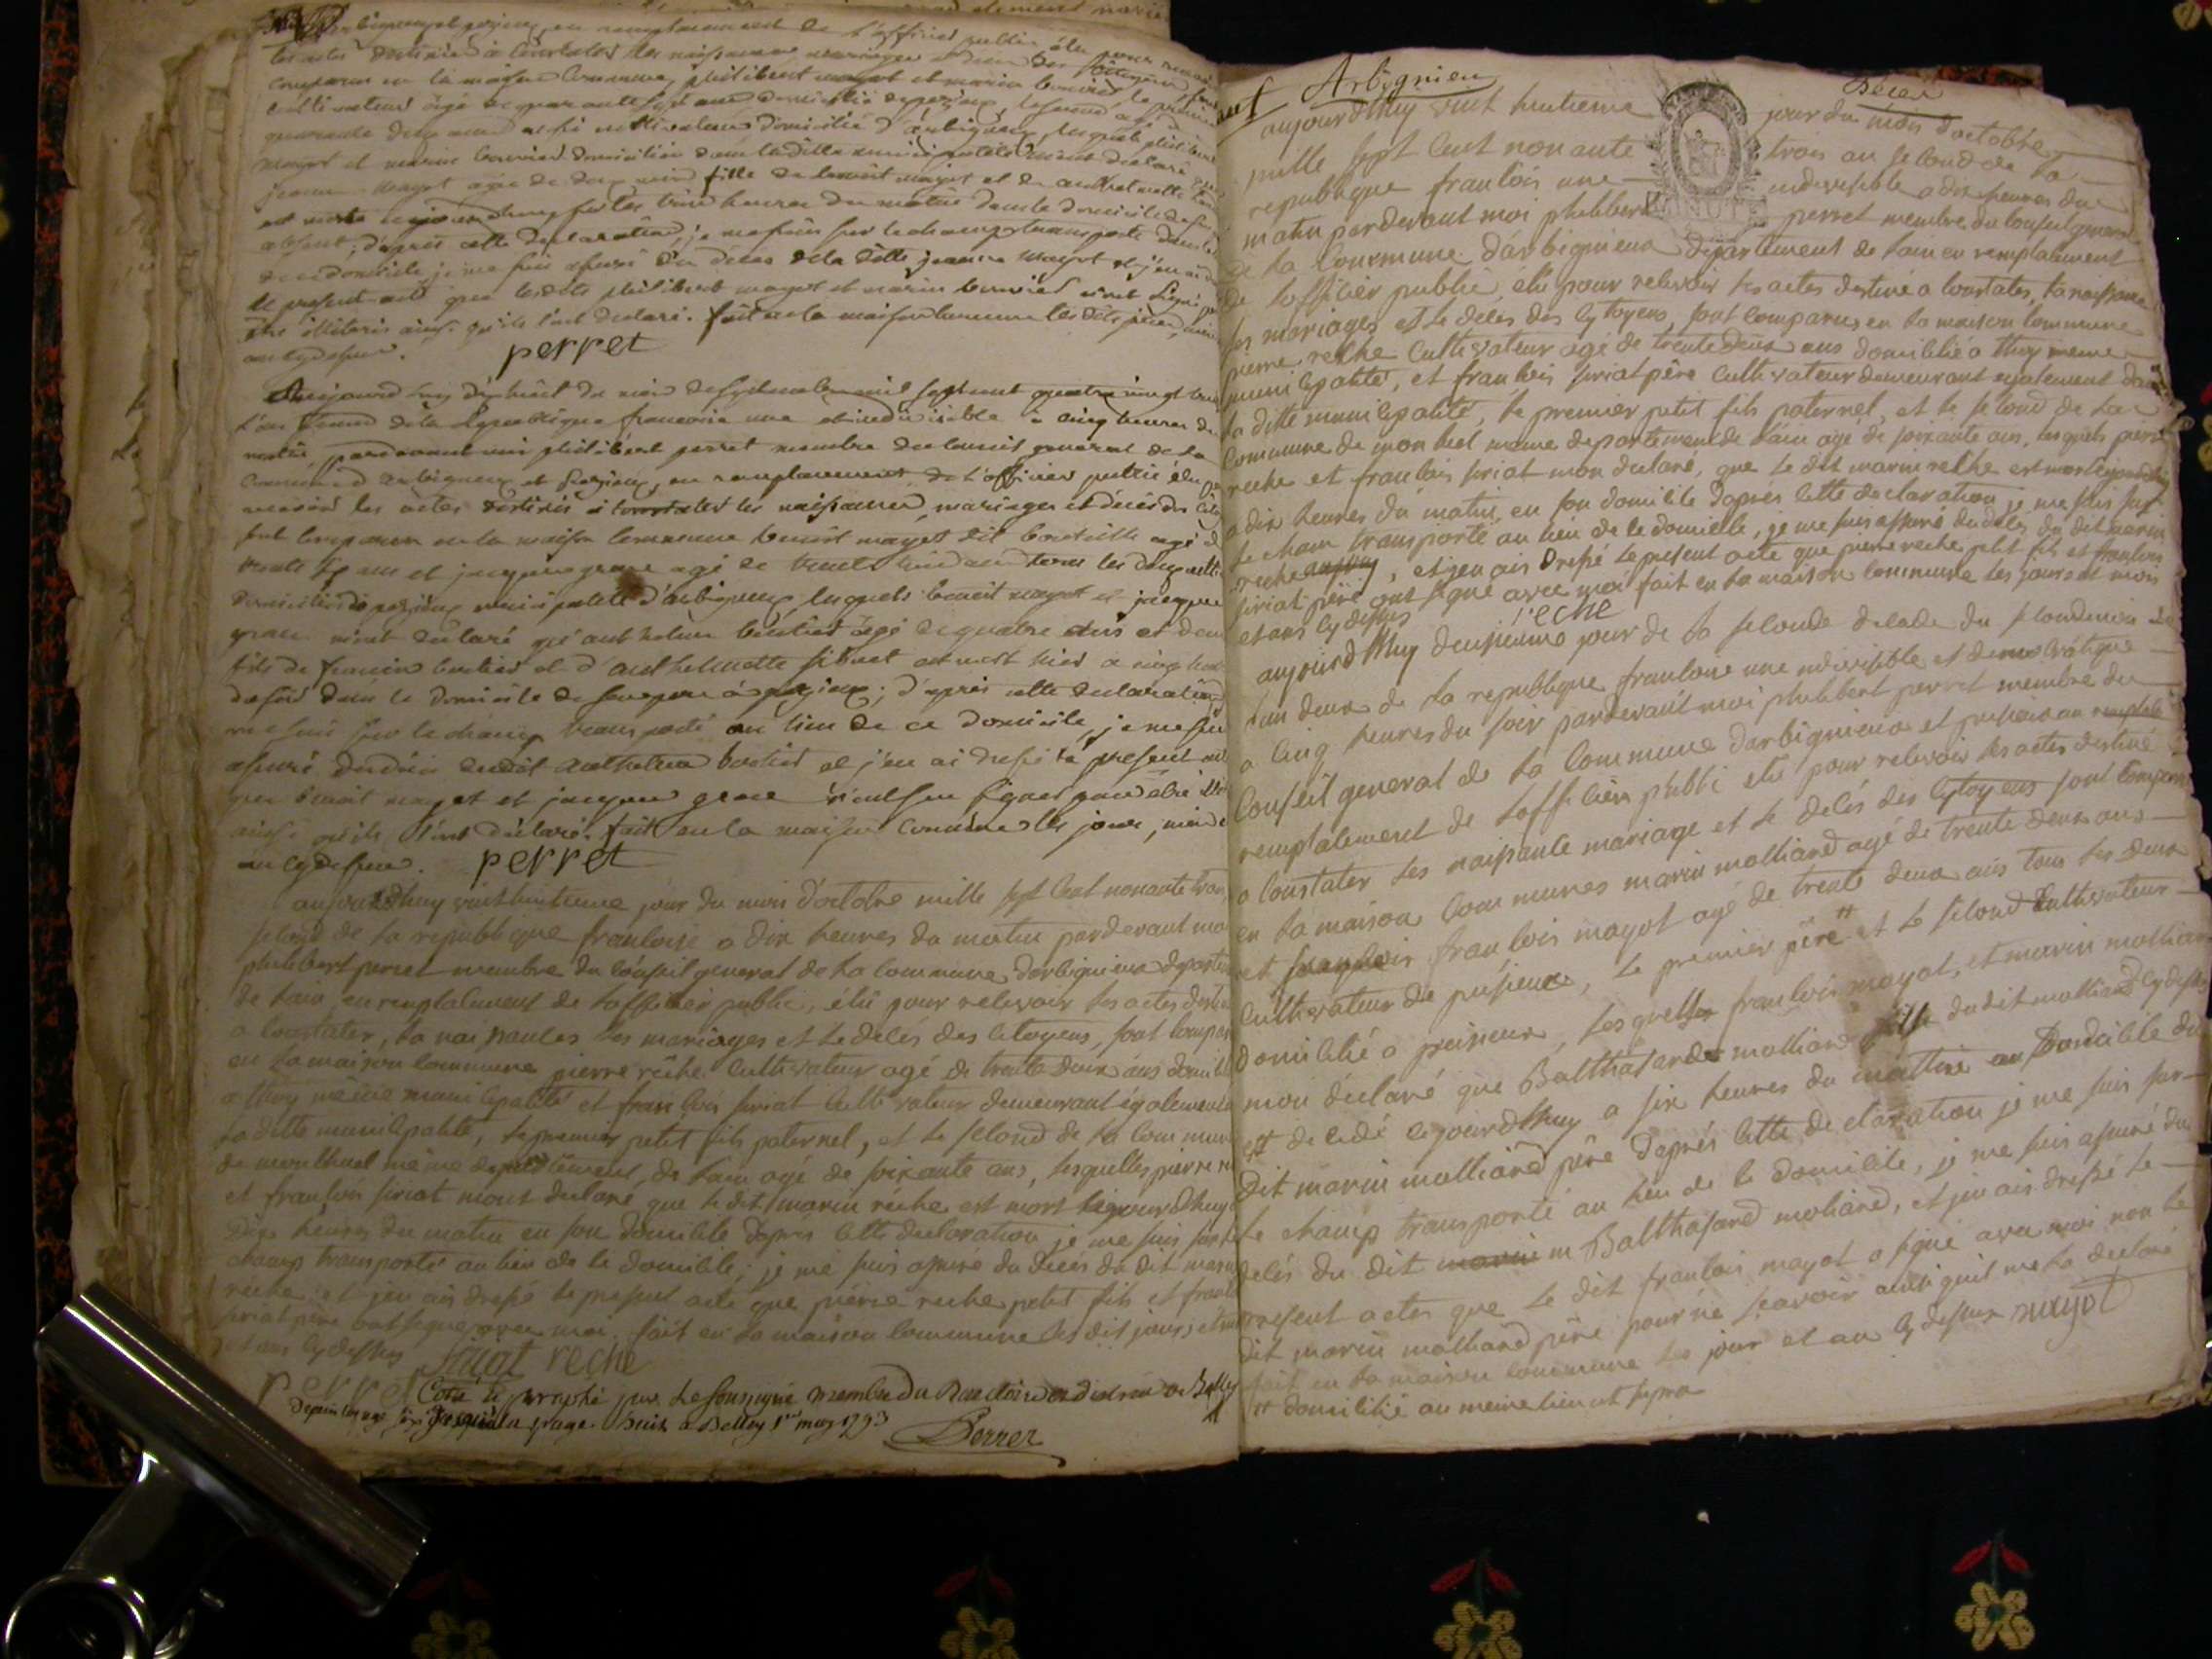 en remplacement de l'officier public élu pour recevoir
les actes destinés à constater les naissances mariages et deces des Citoyens sont
comparus en la maison Commune, philibert mayot et marin bouvier le premier
cultivateur agé de quarante sept ans domicilié a pezieux, le second agé de
quarante deux ans aussi cultivateur domicilié d'arbignieux, lesquels philibert
mayot et marin bouvier domiciliés dans la ditte municipalité m'ont declaré que
jeanne mayot agée de deux mois fille de benoit mayot et de
est morte aujourdhuy heures du matin dans le domicile de son
absent; d'après cette declaration, je me suis sur le champ transporté dans le
de ce domicile je me suis assuré du décès de la ditte jeanne mayot et j'en ai
le present acte que lesdits philibert mayot et marin bouvier n'ont signé
être illiterés ainsi qu'ils l'ont declaré. fait en la maison commune les dits jour, mois
an cydessus. perret
Aujourd'huy dix huit du mois de septembre mil sept cent quatre vingt treize
l'an second de la Republique françoise une et indivisible à cinq heures du
matin, pardevant moi philibert perret membre du conseil general de la
Commune d'arbignieux et Pezieux, en remplacement de l'officier public élu pour
recevoir les actes destinés à constater les naissances, mariages et décès des Cito
sont comparus en la maison commune benoit mayot dit bouteille agé de
trente ans et jacques grace agé de trente huit ans tous les deux cultiv
domiciliés a pezieux municipalité d'arbignieux, lesquels benoit mayot et jacques
grace m'ont declaré qu'anthelme boutier agé de quatre ans et demi
fils de boutier et d'anthelmette sibuet est mort hier a cinq heures
du soir dans le domicile de son pere à pezieux; d'après cette declaration
me suis sur le champ transporté au lieu de ce domicile, je me suis
assuré du décès dudit anthelme boutier et j'en ai dressé le present acte
que benoit mayot et jacques grace n'ont su signer pour être illi
ainsi qu'ils l'ont declaré. fait en la maison commune les jour, mois
an cydessus. perret
aujourdhuy vint huitieme jour du mois d'octobre mille sept cent nonante trois
second de la republique francoise a dix heures du matin pardevant moi
philibert perret membre du conseil general de la commune darbignieux departem
de lain, en remplacement de lofficier public, élu pour recevoir les actes destin
a constater, la naissances les mariages et le deces des citoyens, sont compar
en la maison commune pierre reche cultivateur agé de trente deux ans domicil
a thuy même municipalité et francois siriat cultivateur demeurant également
la ditte municipalité, le premier petit fils paternel, et le second de la commune
de monthuel même departement de lain agé de soixante ans, lesquelles pierre re
et francois siriat mont declaré que le dit marin reche est mort cejourdhuy
dix heures du matin en son domicile daprés cette declaration je me suis sur l
champ transporté au lieu de ce domicile; je me suis assuré du deces du dit marin
reche et jen ais dressé le present acte que pierre reche petit fils et francois
siriat pere ont signe avec moi. fait en la maison commune les dit jours, et mois
et ans cydessus siriat reche
Cotté et paraphé par Le soussigné membre du Directoire du district de Belley
depuis la page jusqu'à la page huit a Belley 1er may 1793
Perret
Arbignieu Décès
aujourdhuy vint huitieme jour du mois doctobre
mille sept cent nonante trois an second de la
republique francois une indivisible a dix heures du
matin pardevant moi philibert perret membre du conseil general
MINUTE
de la commune d'arbignieux departement de lain en remplacement
de lofficier public, élu pour recevoir les actes destiné a constater, la naissance
les mariages et le deces des cytoyens sont comparus en la maison commune
pierre reche cultivateur agé de trente deux ans domicilié a thuy meme
municipalité, et francois siriat père cultivateur demeurant egalement dans
la ditte municipalité, le premier petit fils paternel, et le second de la
commune de monthuel meme departement de l'ain agé de soixante ans, lesquels pierre
reche et francois siriat mon declaré, que le dit marin reche est mort cejourdhuy
a dix heures du matin en son domicile daprés cette declaration je me suis sur
le cham transporté au lieu de ce domicille, je me suis assuré du deces du dit marin
reche, et jen ais dressé le present acte que pierre reche petit fils et francois
siriat père ont signé avec moi fait en la maison commune les jours et mois
et ans cydesses reche
aujourdhuy deusieme jour de la seconde decade du second mois de
lan deux de la republique francoise une indivisible et democratique
a cinq heures du soir pardevant moi philibert perret membre du
conseil general de la commune darbignieux et pezieux en
remplacement de lofficier public elu pour recevoir les actes destiné
a constater les naissance mariage et le decés des cytoyens sont comparus
en la maison communes marin molliard agé de trente deux ans
et francois mayot agé de trente deux ans tous les deux
cultivateur de pusieux, le premier père " et le second cultivateur
domicilié a peusieux, lesquelles francois mayot, et marin molliar
mon déclaré que Balthasarde molliard fille du dit molliard cydesses
est decedé cejourdhuy a six heures du mattin au domicile du
dit marin molliard père daprès cette declaration je me suis sur
le champ transporté au lieu de ce domicile, je me suis assuré du
decés du dit Balthasard moliard, et jen ais dressé le
present actes que le dit francois mayot a signé avec moi non le
dit marin molliard père pour ne scavoir ainsi quil me la declaré
fait en la maison commune les jour et an cydessus mayot
" domicilié au meme lieu ut supra